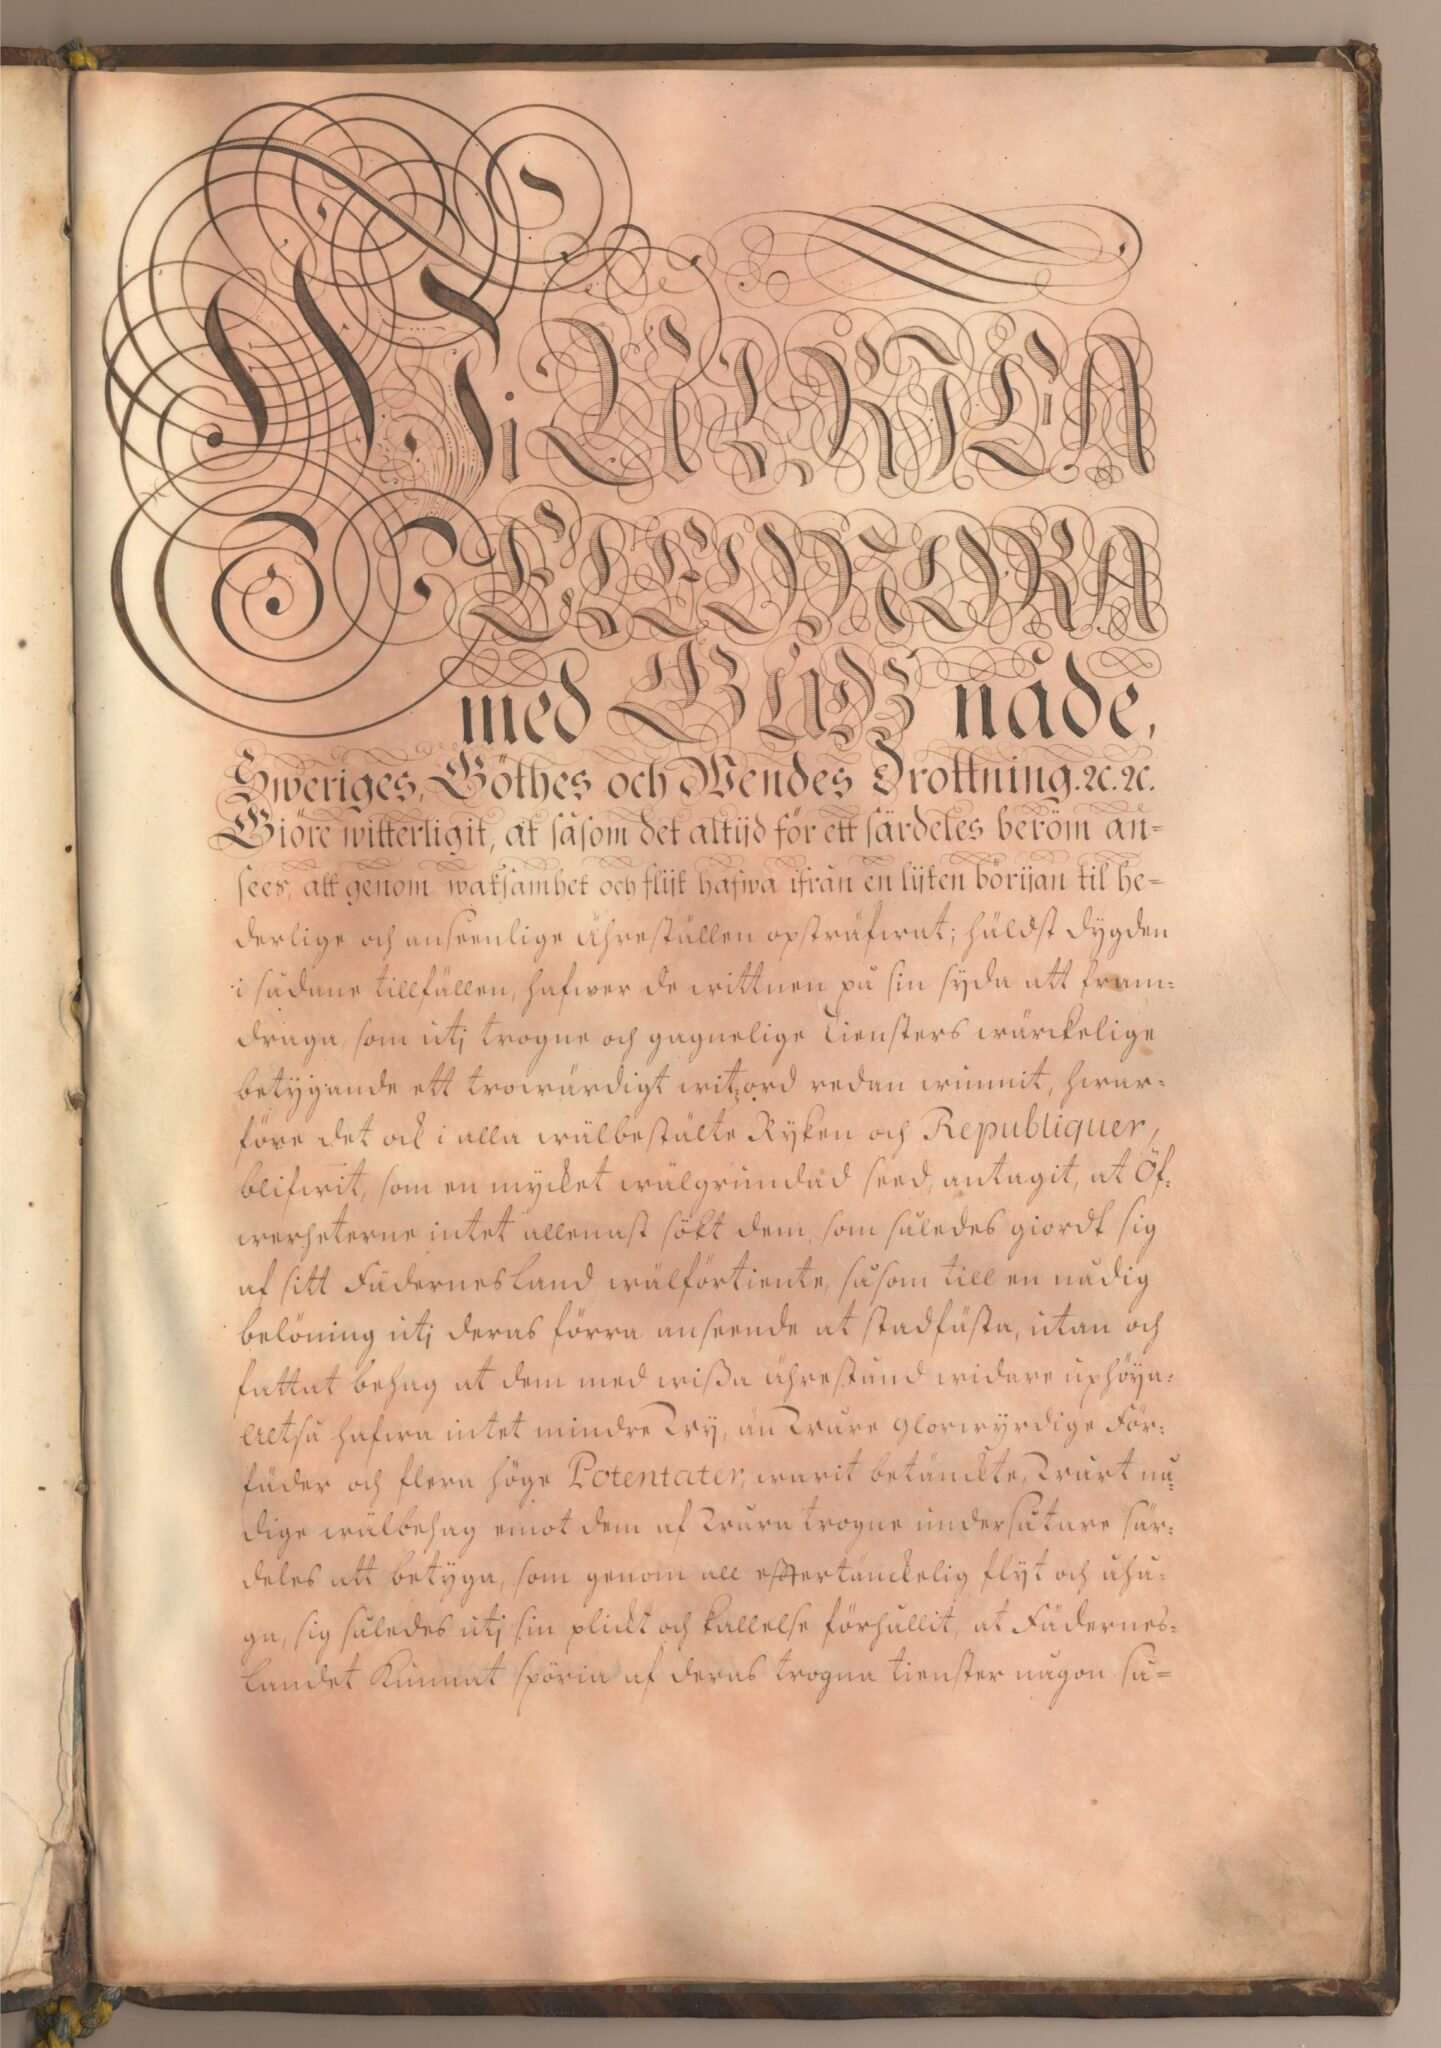 Wi ULRICA
ELEONORA
med GUDZ nåde,
Sweriges, Göthes och Wendes Drottning. ꝛc. ꝛc.
Giöre witterligit, at såsom det altijd för ett särdeles beröm an=
sees, att genom waksamhet och flijt hafwa ifrån en lijten börijan til he=
derlige och anseenlige ähreställen opsträfwat; häldst dygden
i sådane tillfällen, hafwer de wittnen på sin syda att fram=
draga, som utj trogne och gagnelige Tiensters wärckelige
betygande ett trowärdigt witzord redan wunnit, hwar=
före det ock i alla wälbestälte Ryken och Republiquer,
blifwit, som en mycket wälgrundad seed, antagit, at Öf=
werheterne intet allenast sökt dem, som således giordt sig
af sitt Fädernesland wälförtiente, såsom till en nådig
belöning utj deras förra anseende at stadfästa, utan och
fattat behag at dem med wißa ährestånd widare uphöya.
Altså hafwa intet mindre Wy, än Wåre Glorwyrdige För=
fäder och flera höge Potentater, warit betänckte, Wårt nå=
dige wälbehag emot dem af Wåra trogne undersåtare sär=
deles att betyga, som genom all efftertänckelig flyt och åhå=
ga, sig således utj sin plickt och kallelse förhållit, at Fädernes=
Landet Kunnat spöria af deras trogna tienster någon så=